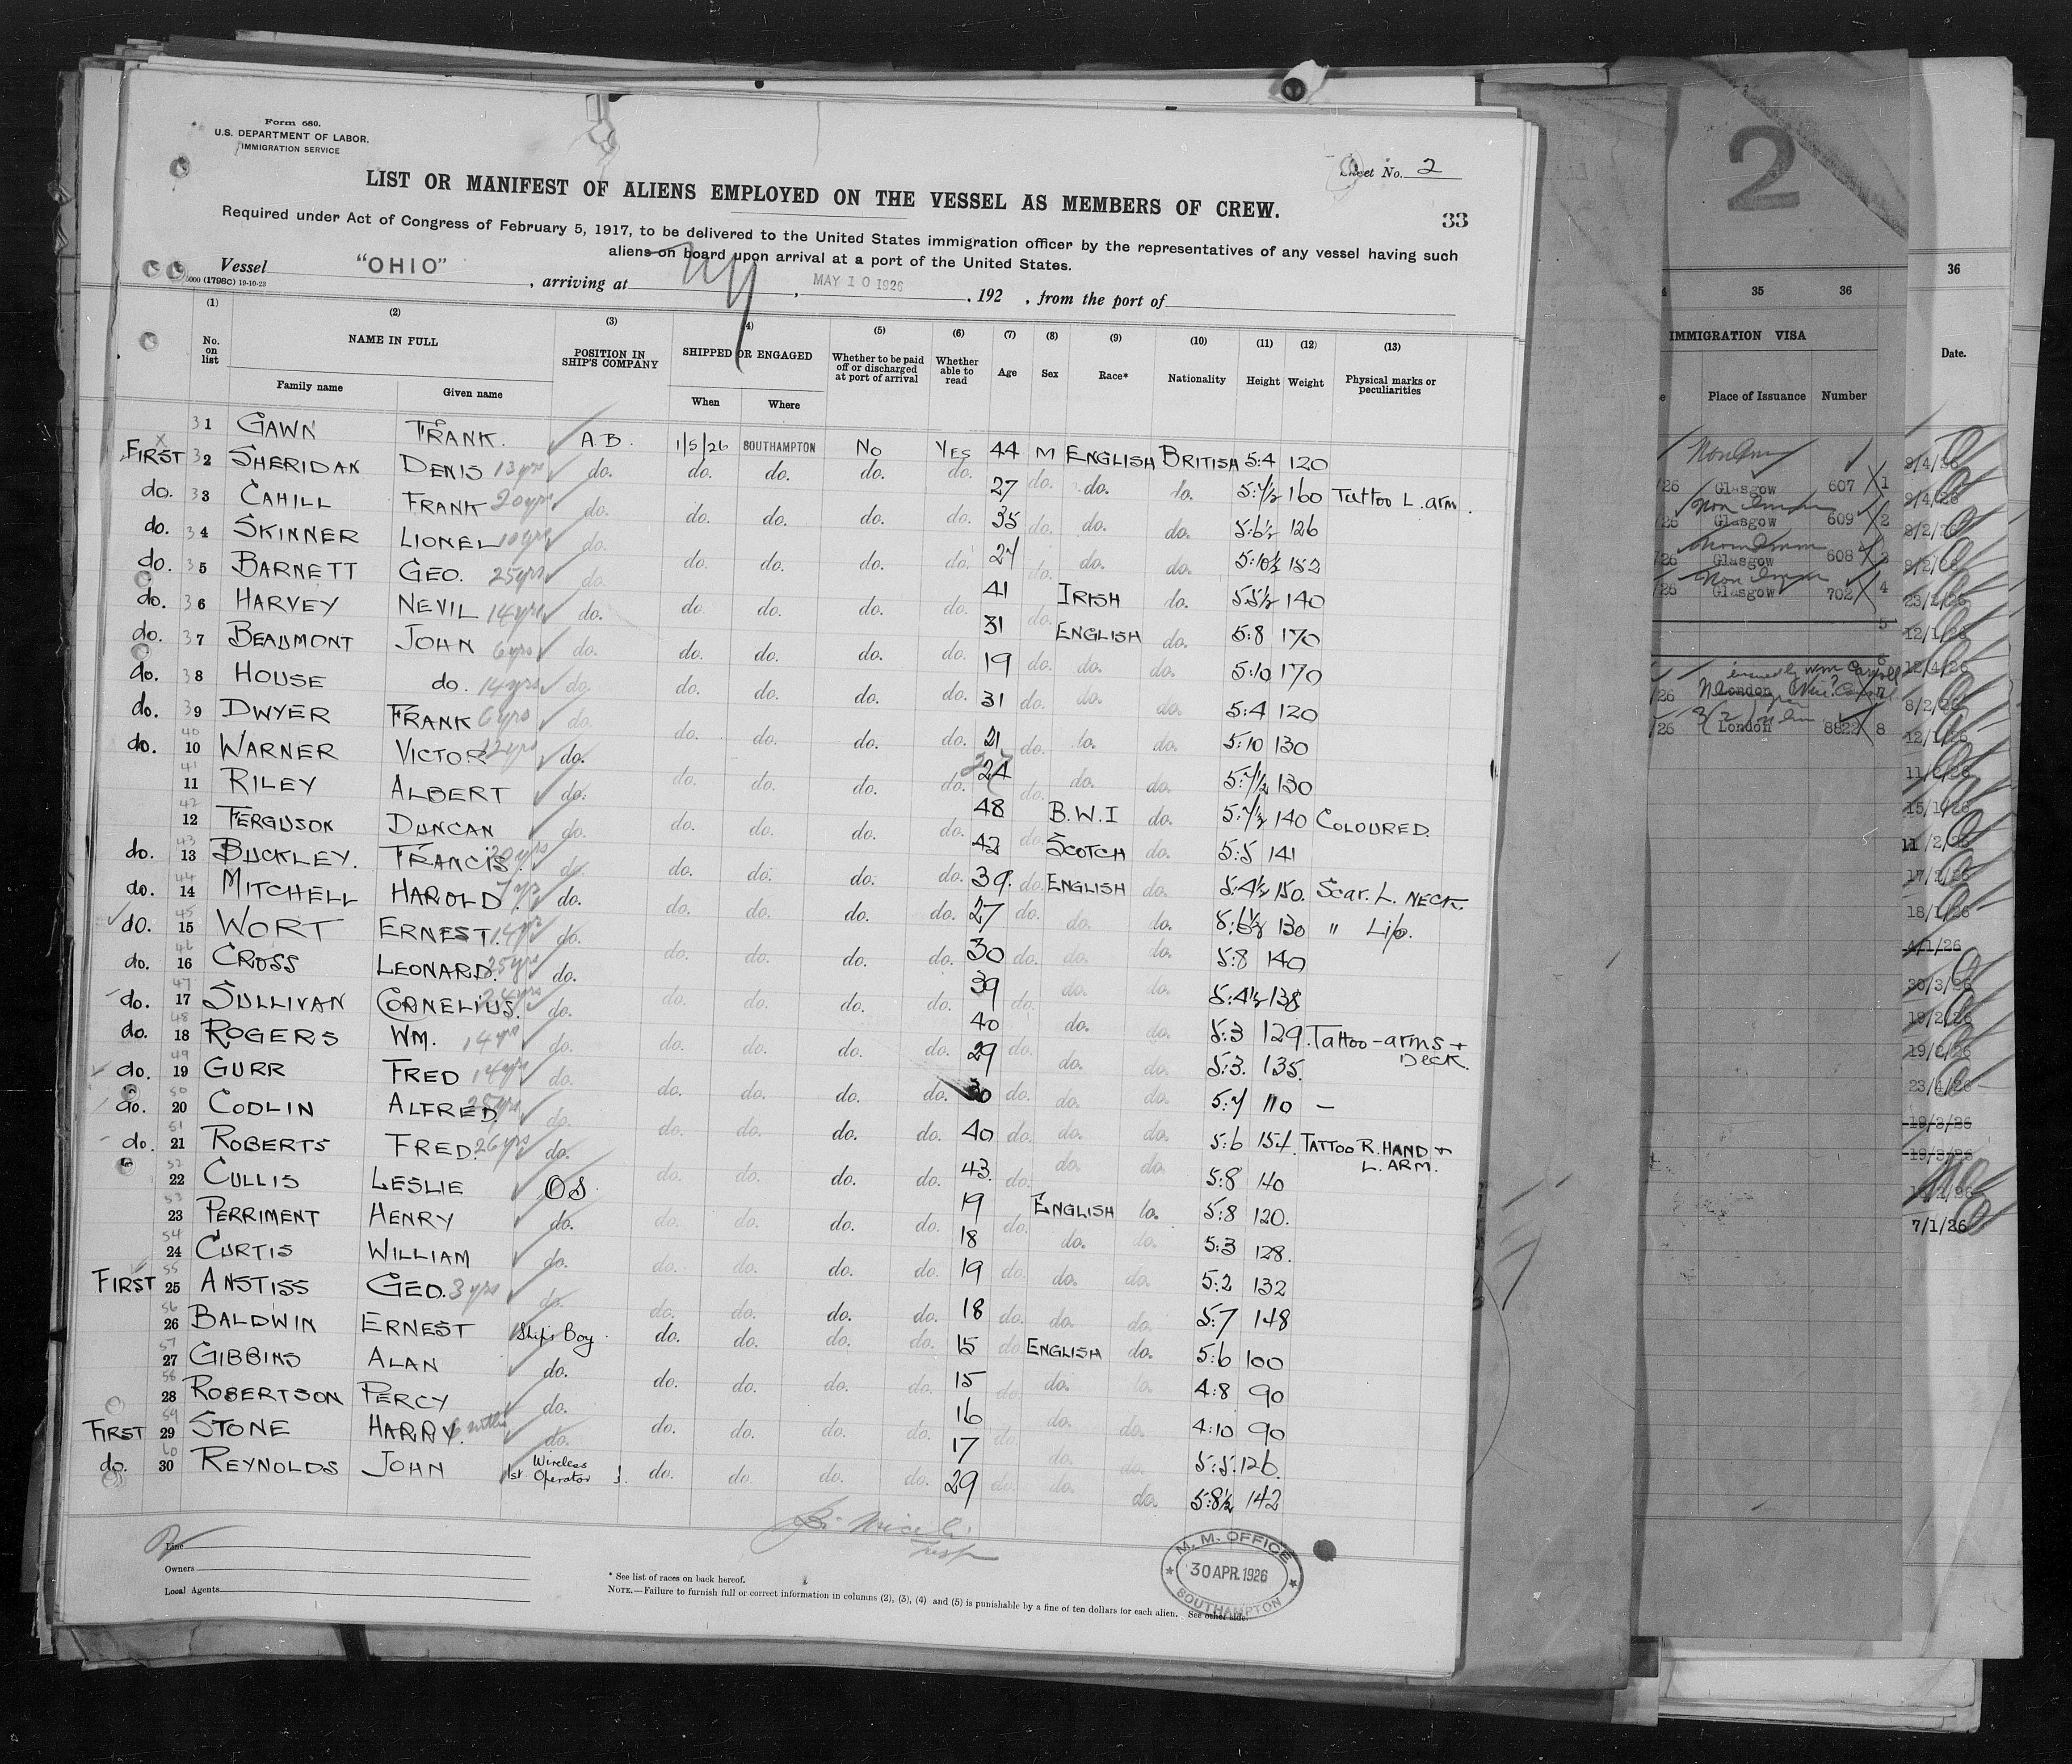 Form 680.
U.S. DEPARTMENT OF LABOR,
IMMIGRATION SERVICE
Sheet No. 2
LIST OR MANIFEST OF ALIENS EMPLOYED ON THE VESSEL AS MEMBERS OF CREW.
33
Required under Act of Congress of February 5, 1917, to be delivered to the United States immigration officer by the representatives of any vessel having such
aliens on board upon arrival at a port of the United States.
Vessel "OHIO" , arriving at NY , MAY 10 1926 , 192 , from the port of
5000 (1798C) 19-10-23
(1) (2) (3) (4) (5) (6) (7) (8) (9) (10) (11) (12) (13)
No. on list NAME IN FULL POSITION IN SHIP'S COMPANY SHIPPED OR ENGAGED Whether to be paid off or discharged at port of arrival Whether able to read Age Sex Race* Nationality Height Weight Physical marks or peculiarities
Family name Given name When Where
31 GAWN FRANK. A.B. 1/5/26 SOUTHAMPTON NO YES 44 M ENGLISH BRITISH 5:4 120
FIRST 32 SHERIDAN DENIS 13yrs do. do. do. do. do. 27 do. do. do. 5:7½ 160 Tattoo L. arm.
do. 33 CAHILL FRANK 20yrs do. do. do. do. do. 35 do. do. do. 5:6½ 126
do. 34 SKINNER LIONEL 10yrs do. do. do. do. do. 27 do. do. do. 5:10½ 152
do. 35 BARNETT GEO. 25yrs do. do. do. do. do. 41 do. IRISH do. 5:5½ 140
do. 36 HARVEY NEVIL 14yrs do. do. do. do. do. 31 do. ENGLISH do. 5:8 170
do. 37 BEAUMONT JOHN 6yrs do. do. do. do. do. 19 do. do. do. 5:10 170
do. 38 HOUSE do. 14yrs do. do. do. do. do. 31 do. do. do. 5:4 120
do. 39 DWYER FRANK 6yrs do. do. do. do. do. 21 do. do. do. 5:10 130
do. 40 10 WARNER VICTOR 12yrs do. do. do. do. do. 24 do. do. do. 5:7½ 130
41 11 RILEY ALBERT do. do. do. do. do. 48 do. B.W.I do. 5:7½ 140 COLOURED.
42 12 FERGUSON DUNCAN do. do. do. do. do. 42 do. SCOTCH do. 5:5 141
do. 43 13 BUCKLEY. FRANCIS. 20yrs do. do. do. do. do. 39. do. ENGLISH do. 5:4½ 150. Scar. L. NECK.
do. 44 14 MITCHELL HAROLD. 7yrs do. do. do. do. do. 27 do. do. do. 5:6½ 130 " Lip.
do. 45 15 WORT ERNEST. 14yrs do. do. do. do. do. 30 do. do. do. 5:8 140
do. 46 16 CROSS LEONARD. 25yrs do. do. do. do. do. 39 do. do. do. 5:4½ 138
do. 47 17 SULLIVAN CORNELIUS. 24yrs do. do. do. do. do. 40 do. do. do. 5:3 129. Tattoo - arms +
do. 48 18 ROGERS WM. 14yrs do. do. do. do. do. 29 do. do. do. 5:3. 135.
do. 49 19 GURR FRED 14yrs do. do. do. do. do. 30 do. do. do. 5:7 110 —
do. 50 20 CODLIN ALFRED. 25yrs do. do. do. do. do. 40 do. do. do. 5:6 154. TATTOO R. HAND +
L. ARM.
do. 51 21 ROBERTS FRED. 26yrs do. do. do. do. do. 43. do. do. do. 5:8 140
52 22 CULLIS LESLIE OS. do. do. do. do. 19 do. ENGLISH do. 5:8 120.
53 23 PERRIMENT HENRY do. do. do. do. do. 18 do. do. do. 5:3 128.
54 24 CURTIS WILLIAM do. do. do. do. do. 19 do. do. do. 5:2 132
FIRST 55 25 ANSTISS GEO. 3yrs do. do. do. do. do. 18 do. do. do. 5:7 148
56 26 BALDWIN ERNEST Ship's Boy. do. do. do. do. 15 do. ENGLISH do. 5:6 100
57 27 GIBBINS ALAN do. do. do. do. do. 15 do. do. do. 4:8 90
58 28 ROBERTSON PERCY do. do. do. do. do. 16 do. do. do. 4:10 90
FIRST 59 29 STONE HARRY. do. do. do. do. do. 17 do. do. do. 5:5. 126.
do. 60 30 REYNOLDS JOHN 1st Wireless Operator do. do. do. do. 29 do. do. do. 5:8½ 142
Line
Owners
Local Agents
* See list of races on back hereof.
NOTE.—Failure to furnish full or correct information in columns (2), (3), (4) and (5) is punishable by a fine of ten dollars for each alien. See other side.
M. M. OFFICE
30 APR. 1926
SOUTHAMPTON
2
35 36
IMMIGRATION VISA
Place of Issuance Number
Glasgow 607 1
Glasgow 609 2
Glasgow 608 3
Glasgow 702 4
5
London 7
London 8822 8
36
Date.
9/4/26
9/4/26
8/2/26
9/2/26
23/2/26
12/1/26
12/4/26
8/2/26
12/1/26
15/1/26
11/2/26
17/2/26
18/1/26
4/1/26
30/3/26
19/2/26
19/2/26
19/3/26
19/3/26
7/1/26